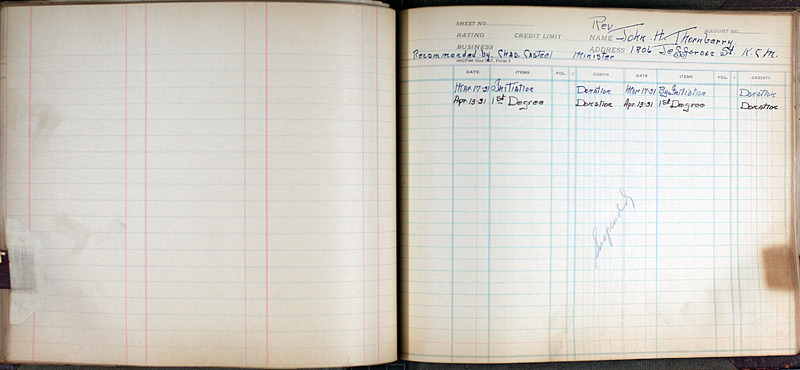 SHEET NO.
Rev
RATING CREDIT LIMIT NAME John H. Thornberry. ACCOUNT NO.
BUSINESS ADDRESS 1806 Jefferson St K.C.M.
Recommended by. Chas. Casteel Minister
DATE ITEMS FOL. √ DEBITS DATE ITEMS FOL. √ CREDITS
Mar. 17-31 Initiation Donation Mar 17-31 By Initiation Donation
Apr. 13-31 1st Degree Donation Apr. 13-31 1st Degree Donation
Suspended